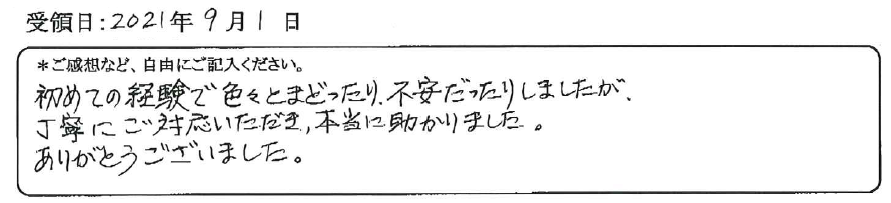 受領日:2021年9月1日
*ご感想など、自由にご記入ください。
初めての経験で色々とまどったり、不安だったりしましたが、
丁寧にご対応いただき、本当に助かりました。
ありがとうございました。